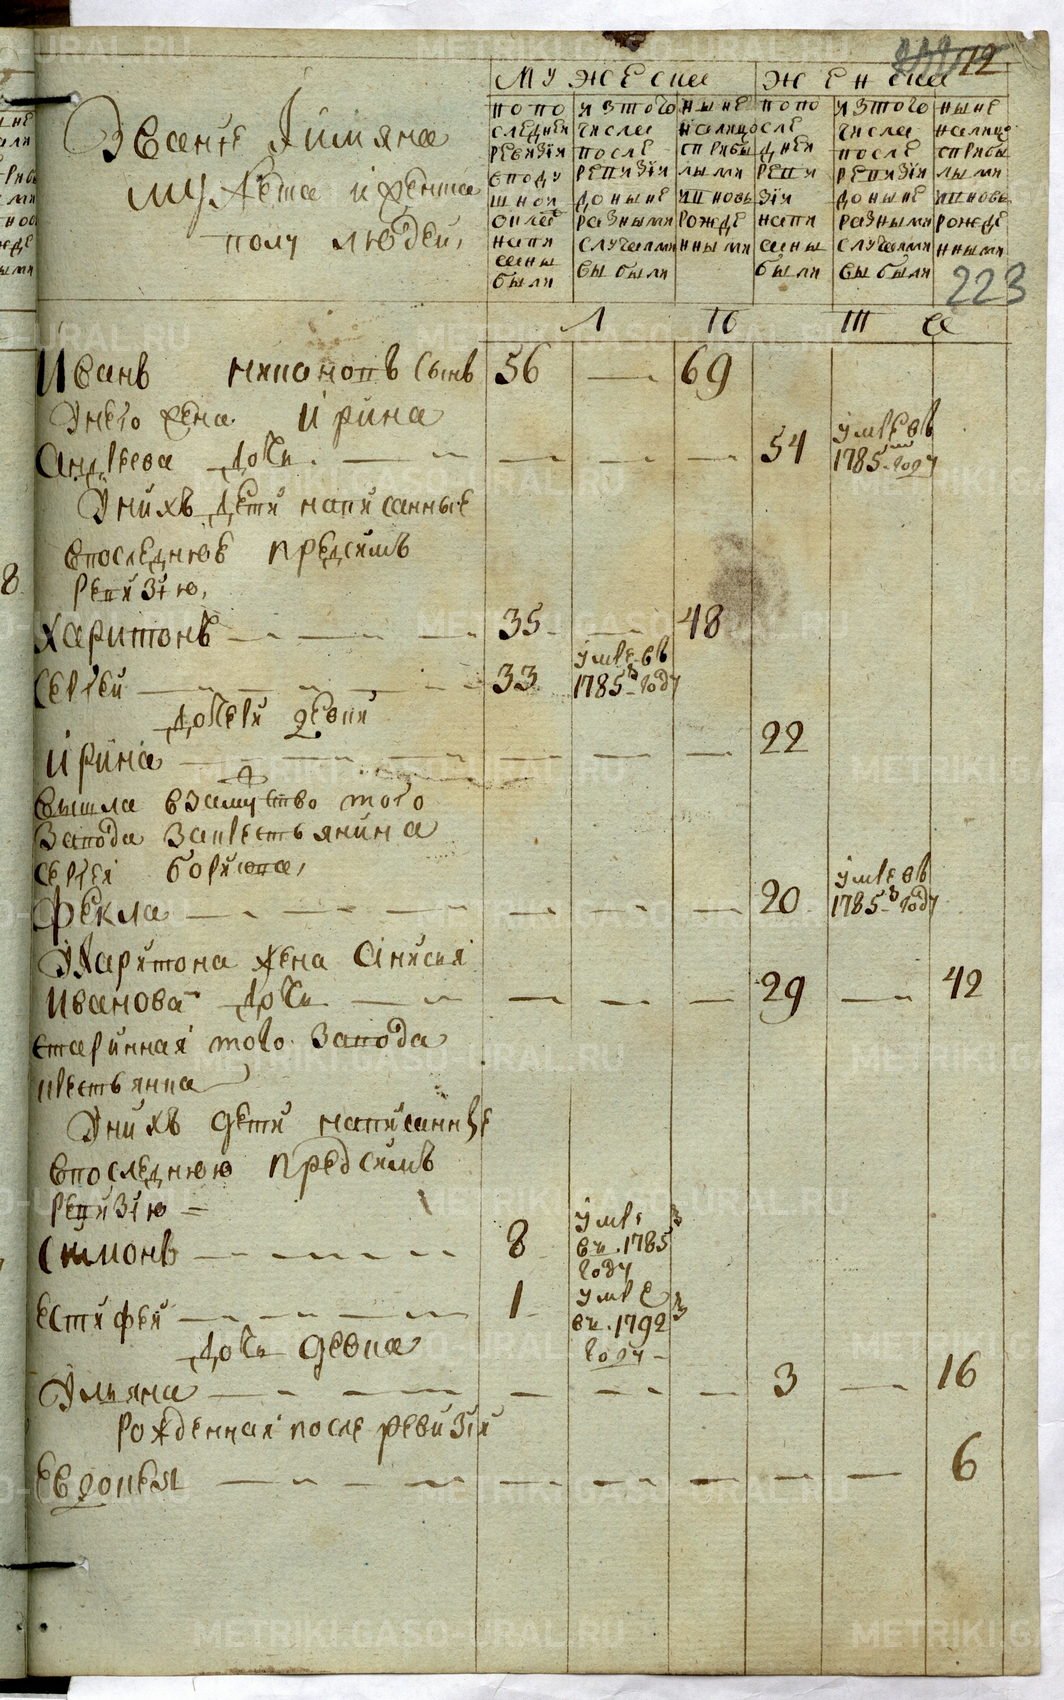 12
223
мужеска
женска
Званіе Імяна
мужеска іженска
полу людей,
попо
следней
ревизіи
вподу
шной
оклад
напи
саны
были
изтого
числа
после
ревизіи
доныне
разными
случаями
выбыли
ныне
налицо
сприбы
лыми
ивновь
рожде
нными
попо
сле
дней
реви
зіи
напи
саны
были
изтого
числа
после
ревизіи
доныне
разными
случаями
выбыли
ныне
налицо
сприбы
лыми
ивновь
рожде
нными
Иванъ сынъ 56 — 69
Унего жена Ирина
Андреева дочь 54 умре въ
1785 году
Унихъ дети написанные
впоследнюе предсимъ
ревизію,
Харитонъ 35 — 48
Сергей 33 умре въ
1785 году
дочери девки
Ирина 22
вышла взамужство того
завода закрестьянина
Сергея Борисова,
Фекла 20 умре въ
1785 году
УХаритона жена Анисья
Иванова дочь 29 — 42
старинная того завода
крестьянка
Унихъ дети написанные
впоследнюю предсимъ
ревизію
Симонъ 8 умре
въ 1785
году
Естифей 1 умре
въ 1792
году
дочь девка
Ульяна 3 — 16
рожденная после ревизіи
Евдокея 6
METRIKI.GASO-URAL.RU